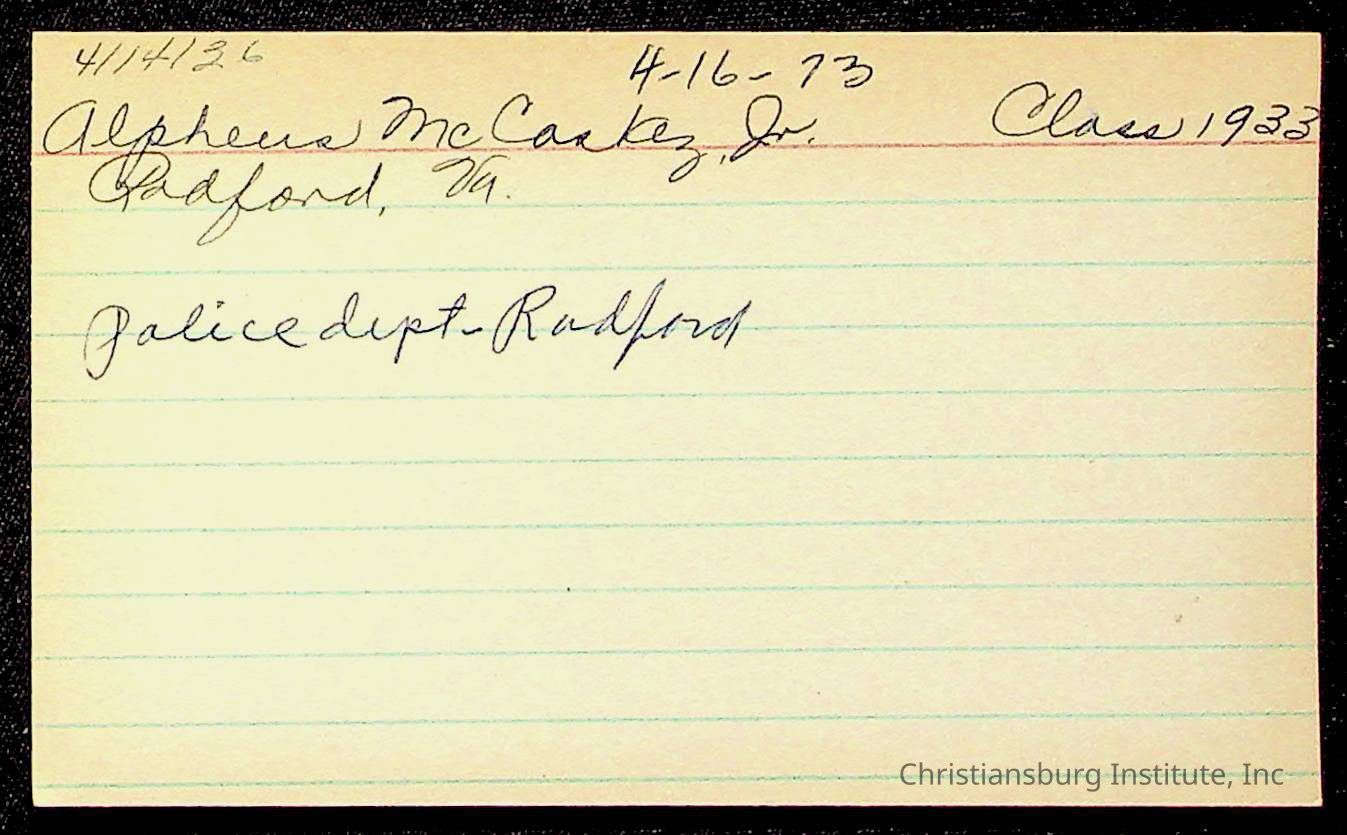 4/14/36 4-16-73
Alpheus McCaskey, Jr. Class 1933
Radford, Va.
Police dept- Radford
Christiansburg Institute, Inc